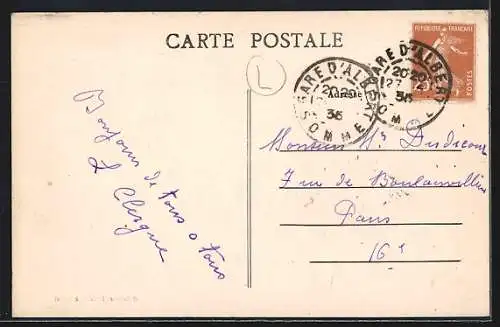 CARTE POSTALE
L
Adresse
GARE D'ALBERT
20-20
27
36
SOMME
GARE D'ALBERT
20-20
27
36
SOMME
REPUBLIQUE FRANÇAISE
POSTES
Bonjour de tous a tous
L Clergue
Monsieur
7 rue de Boulainvilliers
Paris
16e